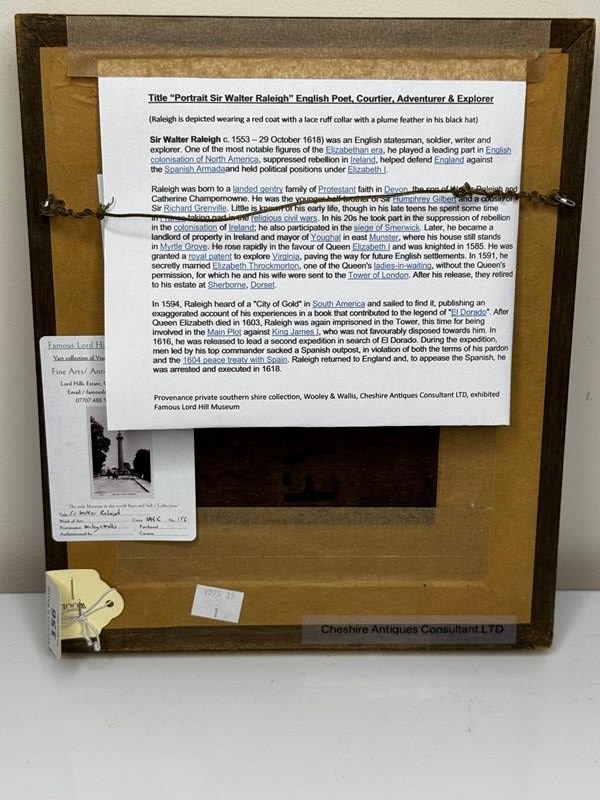 Title “Portrait Sir Walter Raleigh” English Poet, Courtier, Adventurer & Explorer
(Raleigh is depicted wearing a red coat with a lace ruff collar with a plume feather in his black hat)
Sir Walter Raleigh c. 1553 – 29 October 1618) was an English statesman, soldier, writer and
explorer. One of the most notable figures of the Elizabethan era, he played a leading part in English
colonisation of North America, suppressed rebellion in Ireland, helped defend England against
the Spanish Armadaand held political positions under Elizabeth I.
Raleigh was born to a landed gentry family of Protestant faith in Devon, the son of Walter Raleigh and
Catherine Champernowne. He was the younger half-brother of Sir Humphrey Gilbert and a cousin of
Sir Richard Grenville. Little is known of his early life, though in his late teens he spent some time
in France taking part in the religious civil wars. In his 20s he took part in the suppression of rebellion
in the colonisation of Ireland; he also participated in the siege of Smerwick. Later, he became a
landlord of property in Ireland and mayor of Youghal in east Munster, where his house still stands
in Myrtle Grove. He rose rapidly in the favour of Queen Elizabeth I and was knighted in 1585. He was
granted a royal patent to explore Virginia, paving the way for future English settlements. In 1591, he
secretly married Elizabeth Throckmorton, one of the Queen's ladies-in-waiting, without the Queen's
permission, for which he and his wife were sent to the Tower of London. After his release, they retired
to his estate at Sherborne, Dorset.
In 1594, Raleigh heard of a "City of Gold" in South America and sailed to find it, publishing an
exaggerated account of his experiences in a book that contributed to the legend of "El Dorado". After
Queen Elizabeth died in 1603, Raleigh was again imprisoned in the Tower, this time for being
involved in the Main Plot against King James I, who was not favourably disposed towards him. In
1616, he was released to lead a second expedition in search of El Dorado. During the expedition,
men led by his top commander sacked a Spanish outpost, in violation of both the terms of his pardon
and the 1604 peace treaty with Spain. Raleigh returned to England and, to appease the Spanish, he
was arrested and executed in 1618.
Provenance private southern shire collection, Wooley & Wallis, Cheshire Antiques Consultant LTD, exhibited
Famous Lord Hill Museum
Famous Lord
Vast collection of
Fine Arts/
Lord Hills Estate,
Email /
07707 488
Title Sir Walter Raleigh
Work of Art Circa No 156
Provenance Purchased
Authenticated by Curator
956
1
Cheshire Antiques Consultant LTD